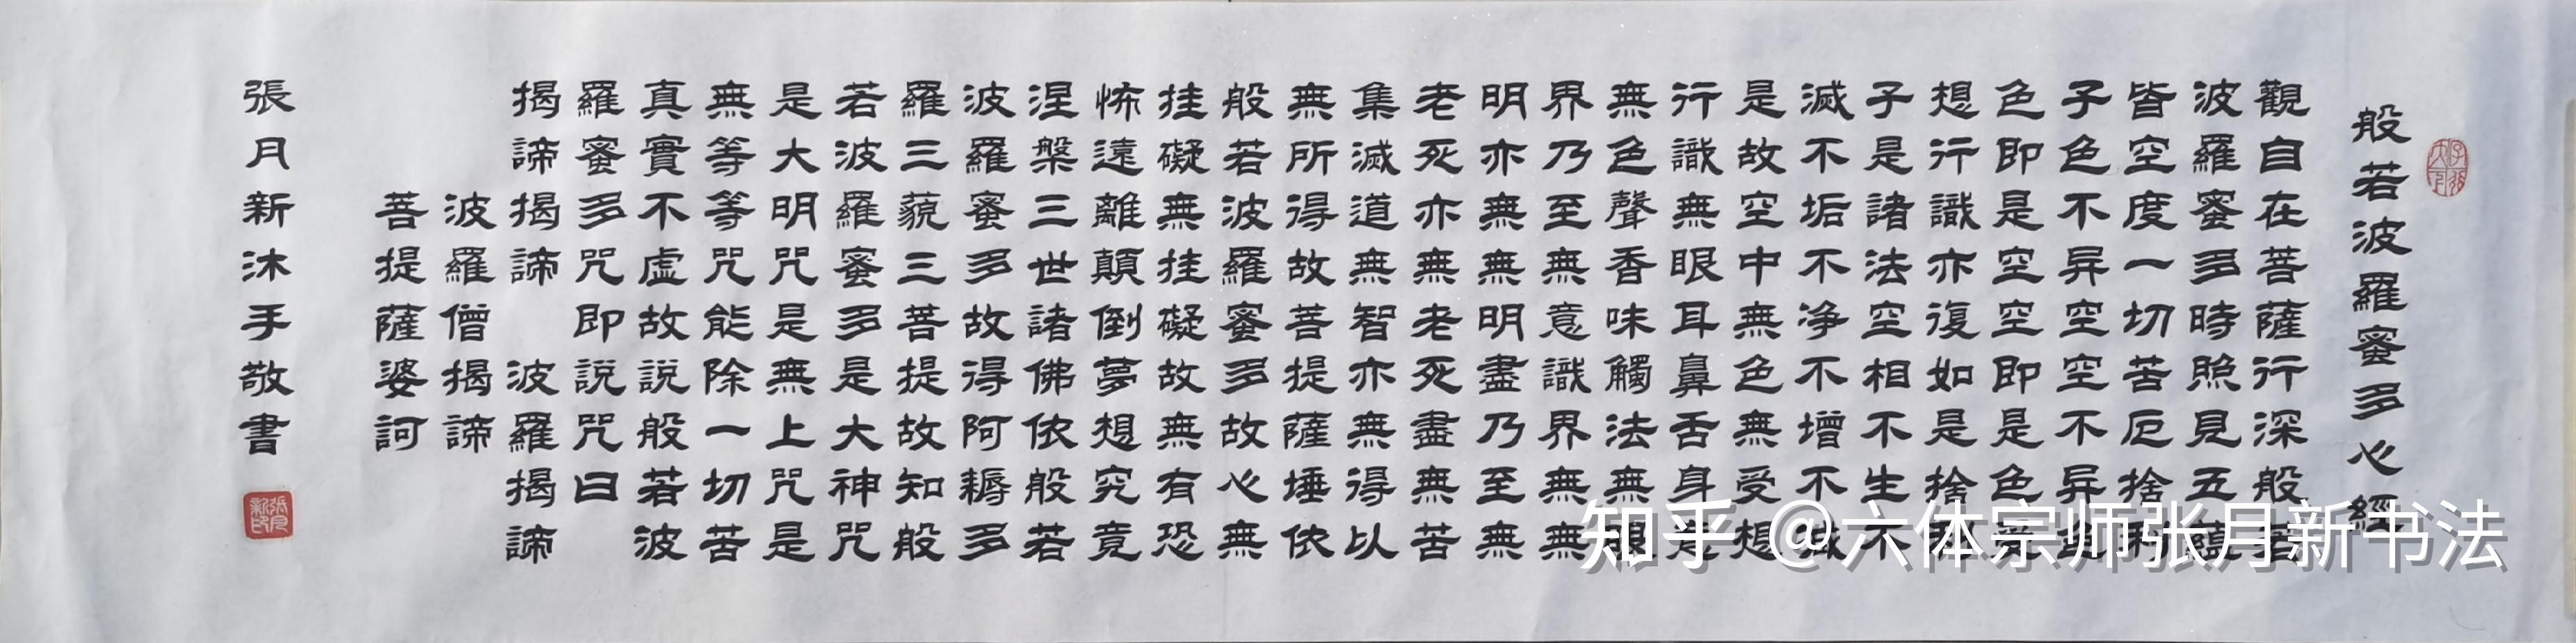 般若波羅蜜多心經
觀自在菩薩行深般若
波羅蜜多時照見五蘊
皆空度一切苦厄捨利
子色不异空空不异色
色即是空空即是色受
想行識亦復如是捨利
子是諸法空相不生不
滅不垢不净不增不減
是故空中無色無受想
行識無眼耳鼻舌身意
無色聲香味觸法無眼
界乃至無意識界無無
明亦無無明盡乃至無
老死亦無老死盡無苦
集滅道無智亦無得以
無所得故菩提薩埵依
般若波羅蜜多故心無
挂礙無挂礙故無有恐
怖遠離顛倒夢想究竟
涅槃三世諸佛依般若
波羅蜜多故得阿耨多
羅三藐三菩提故知般
若波羅蜜多是大神咒
是大明咒是無上咒是
無等等咒能除一切苦
真實不虛故說般若波
羅蜜多咒即說咒曰
揭諦揭諦 波羅揭諦
波羅僧揭諦
菩提薩婆訶
張月新沐手敬書
張月新印
知乎 @六体宗师张月新书法